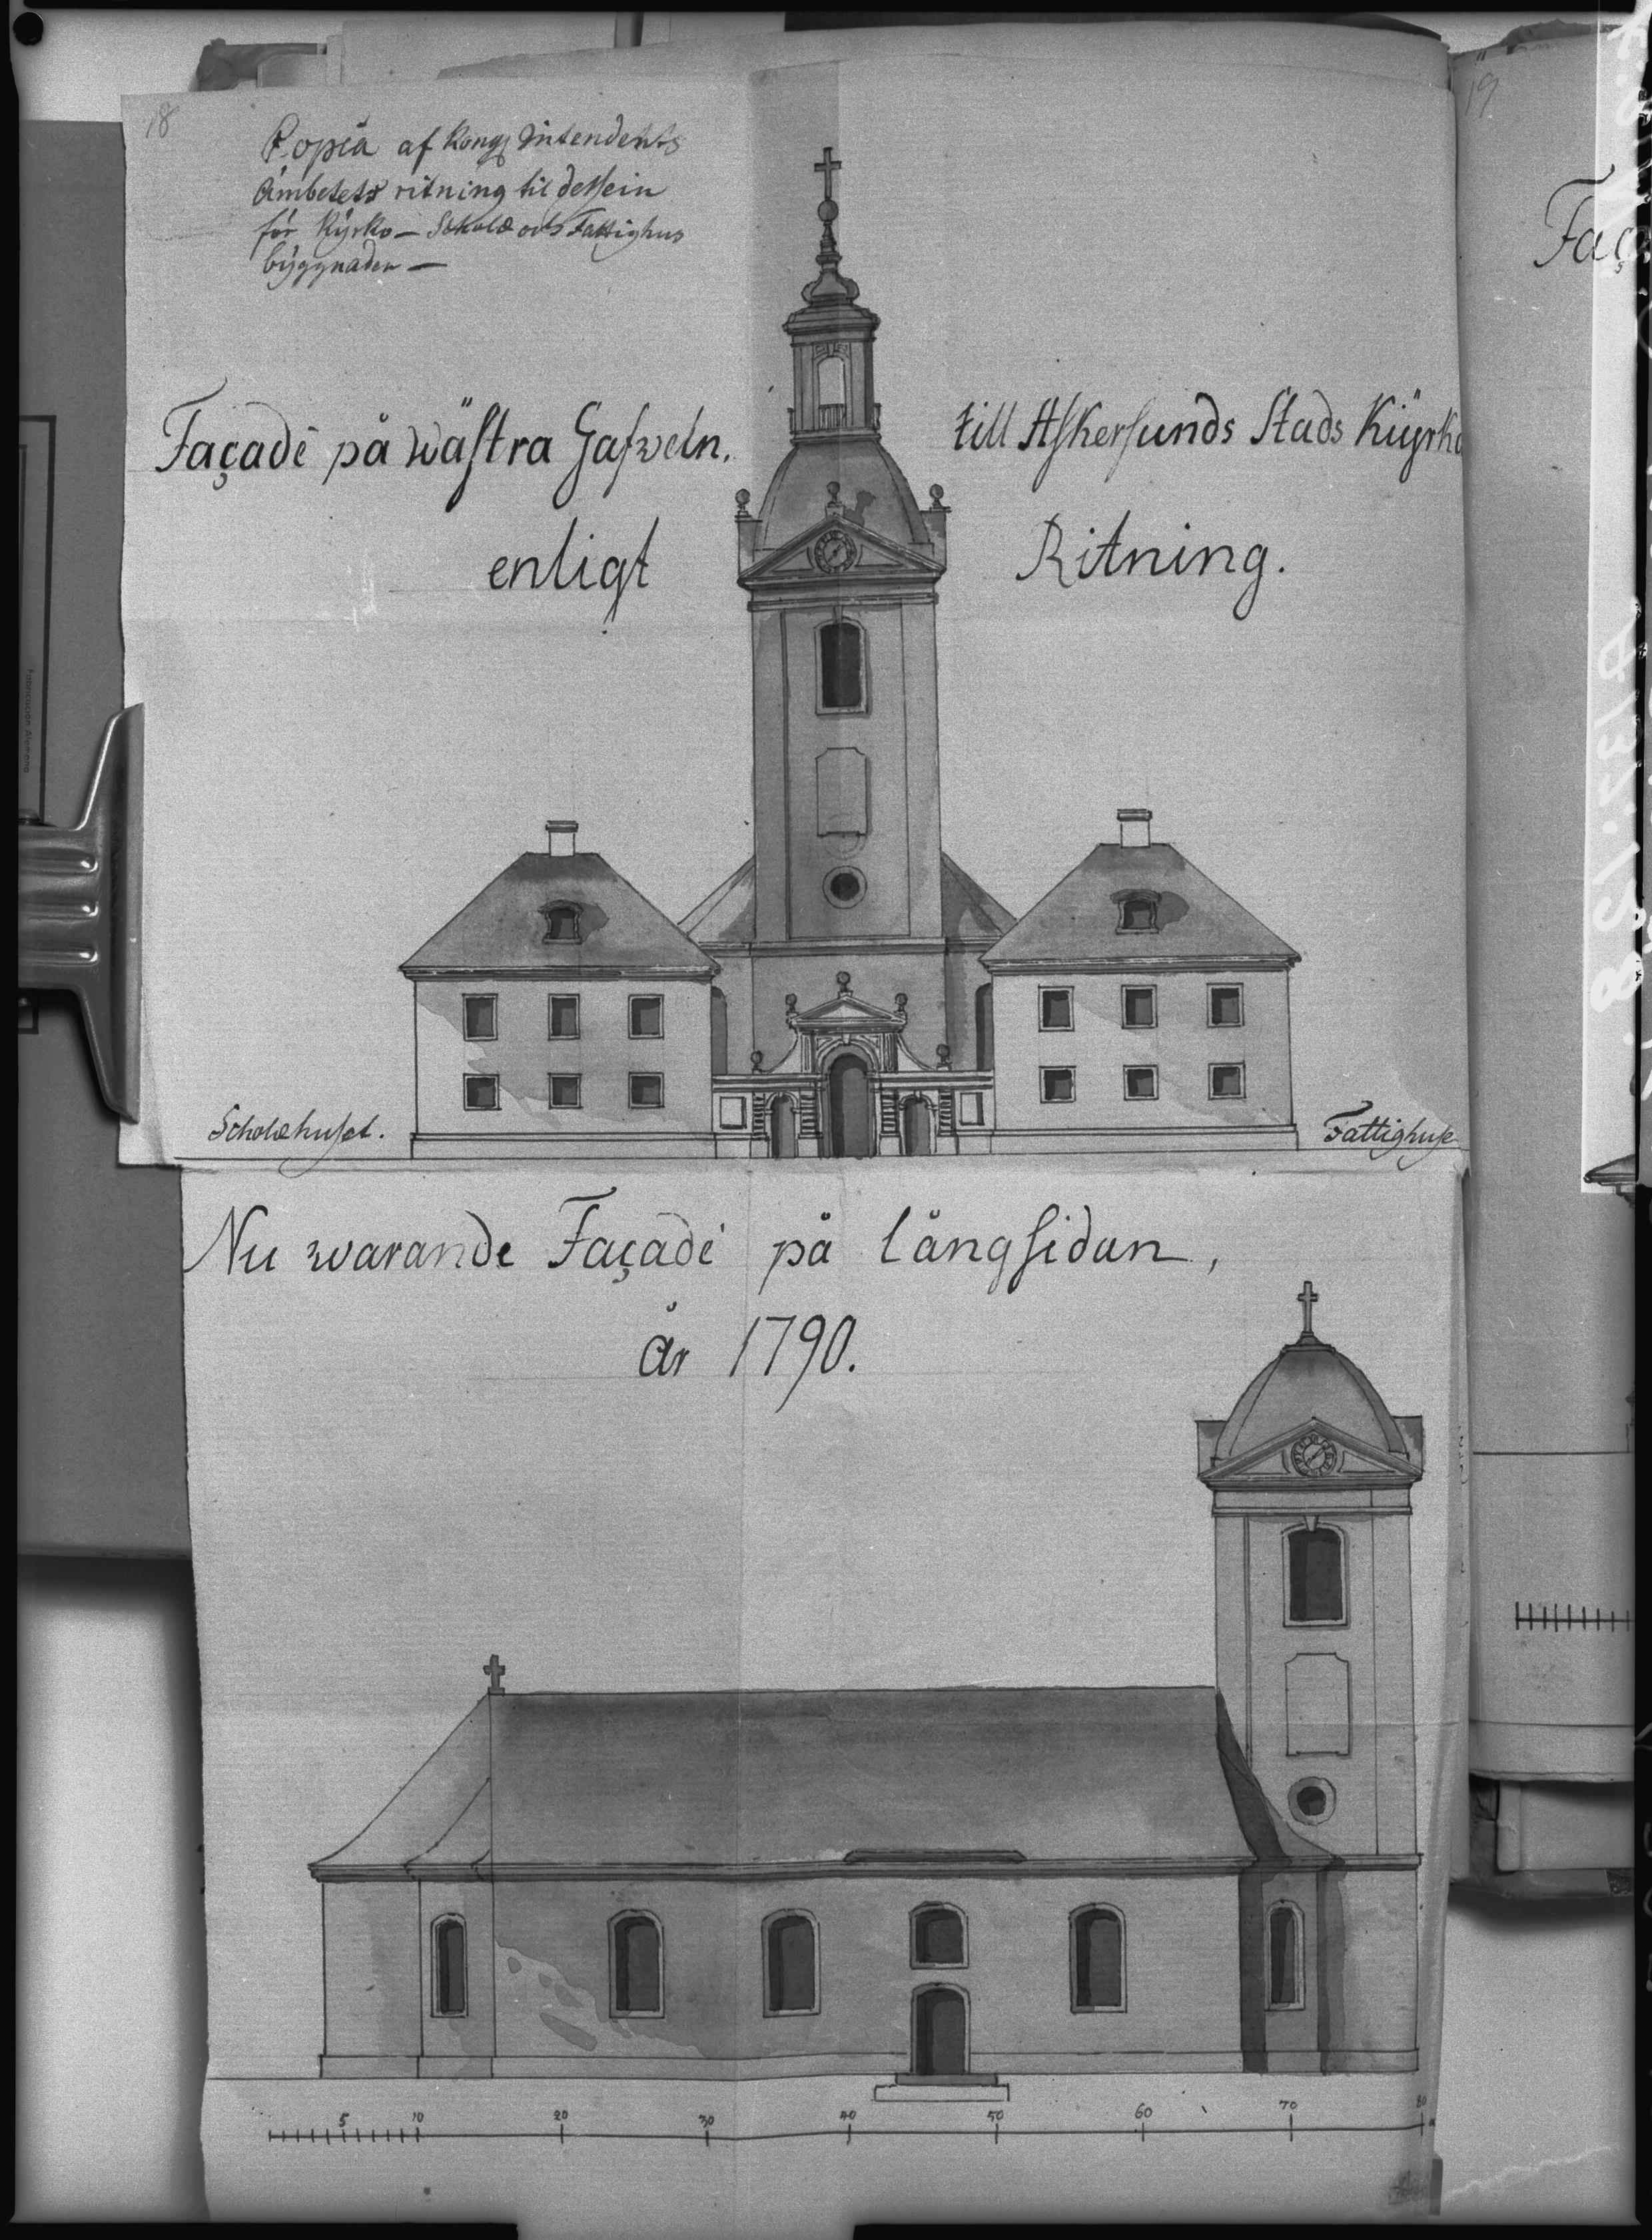 18
Copia af Kongl Intendents
Ämbetets ritning til dessein
för Kÿrko – Schole och Fattighus
bÿggnader –
19
Façade på wästra Gafweln,
till Askersunds Stads Kÿrko
enligt
Ritning.
Faç
Scholehuset.
Fattighuse
Nu warande Façade på långsidan,
år 1790.
5 10 20 30 40 50 60 70 80